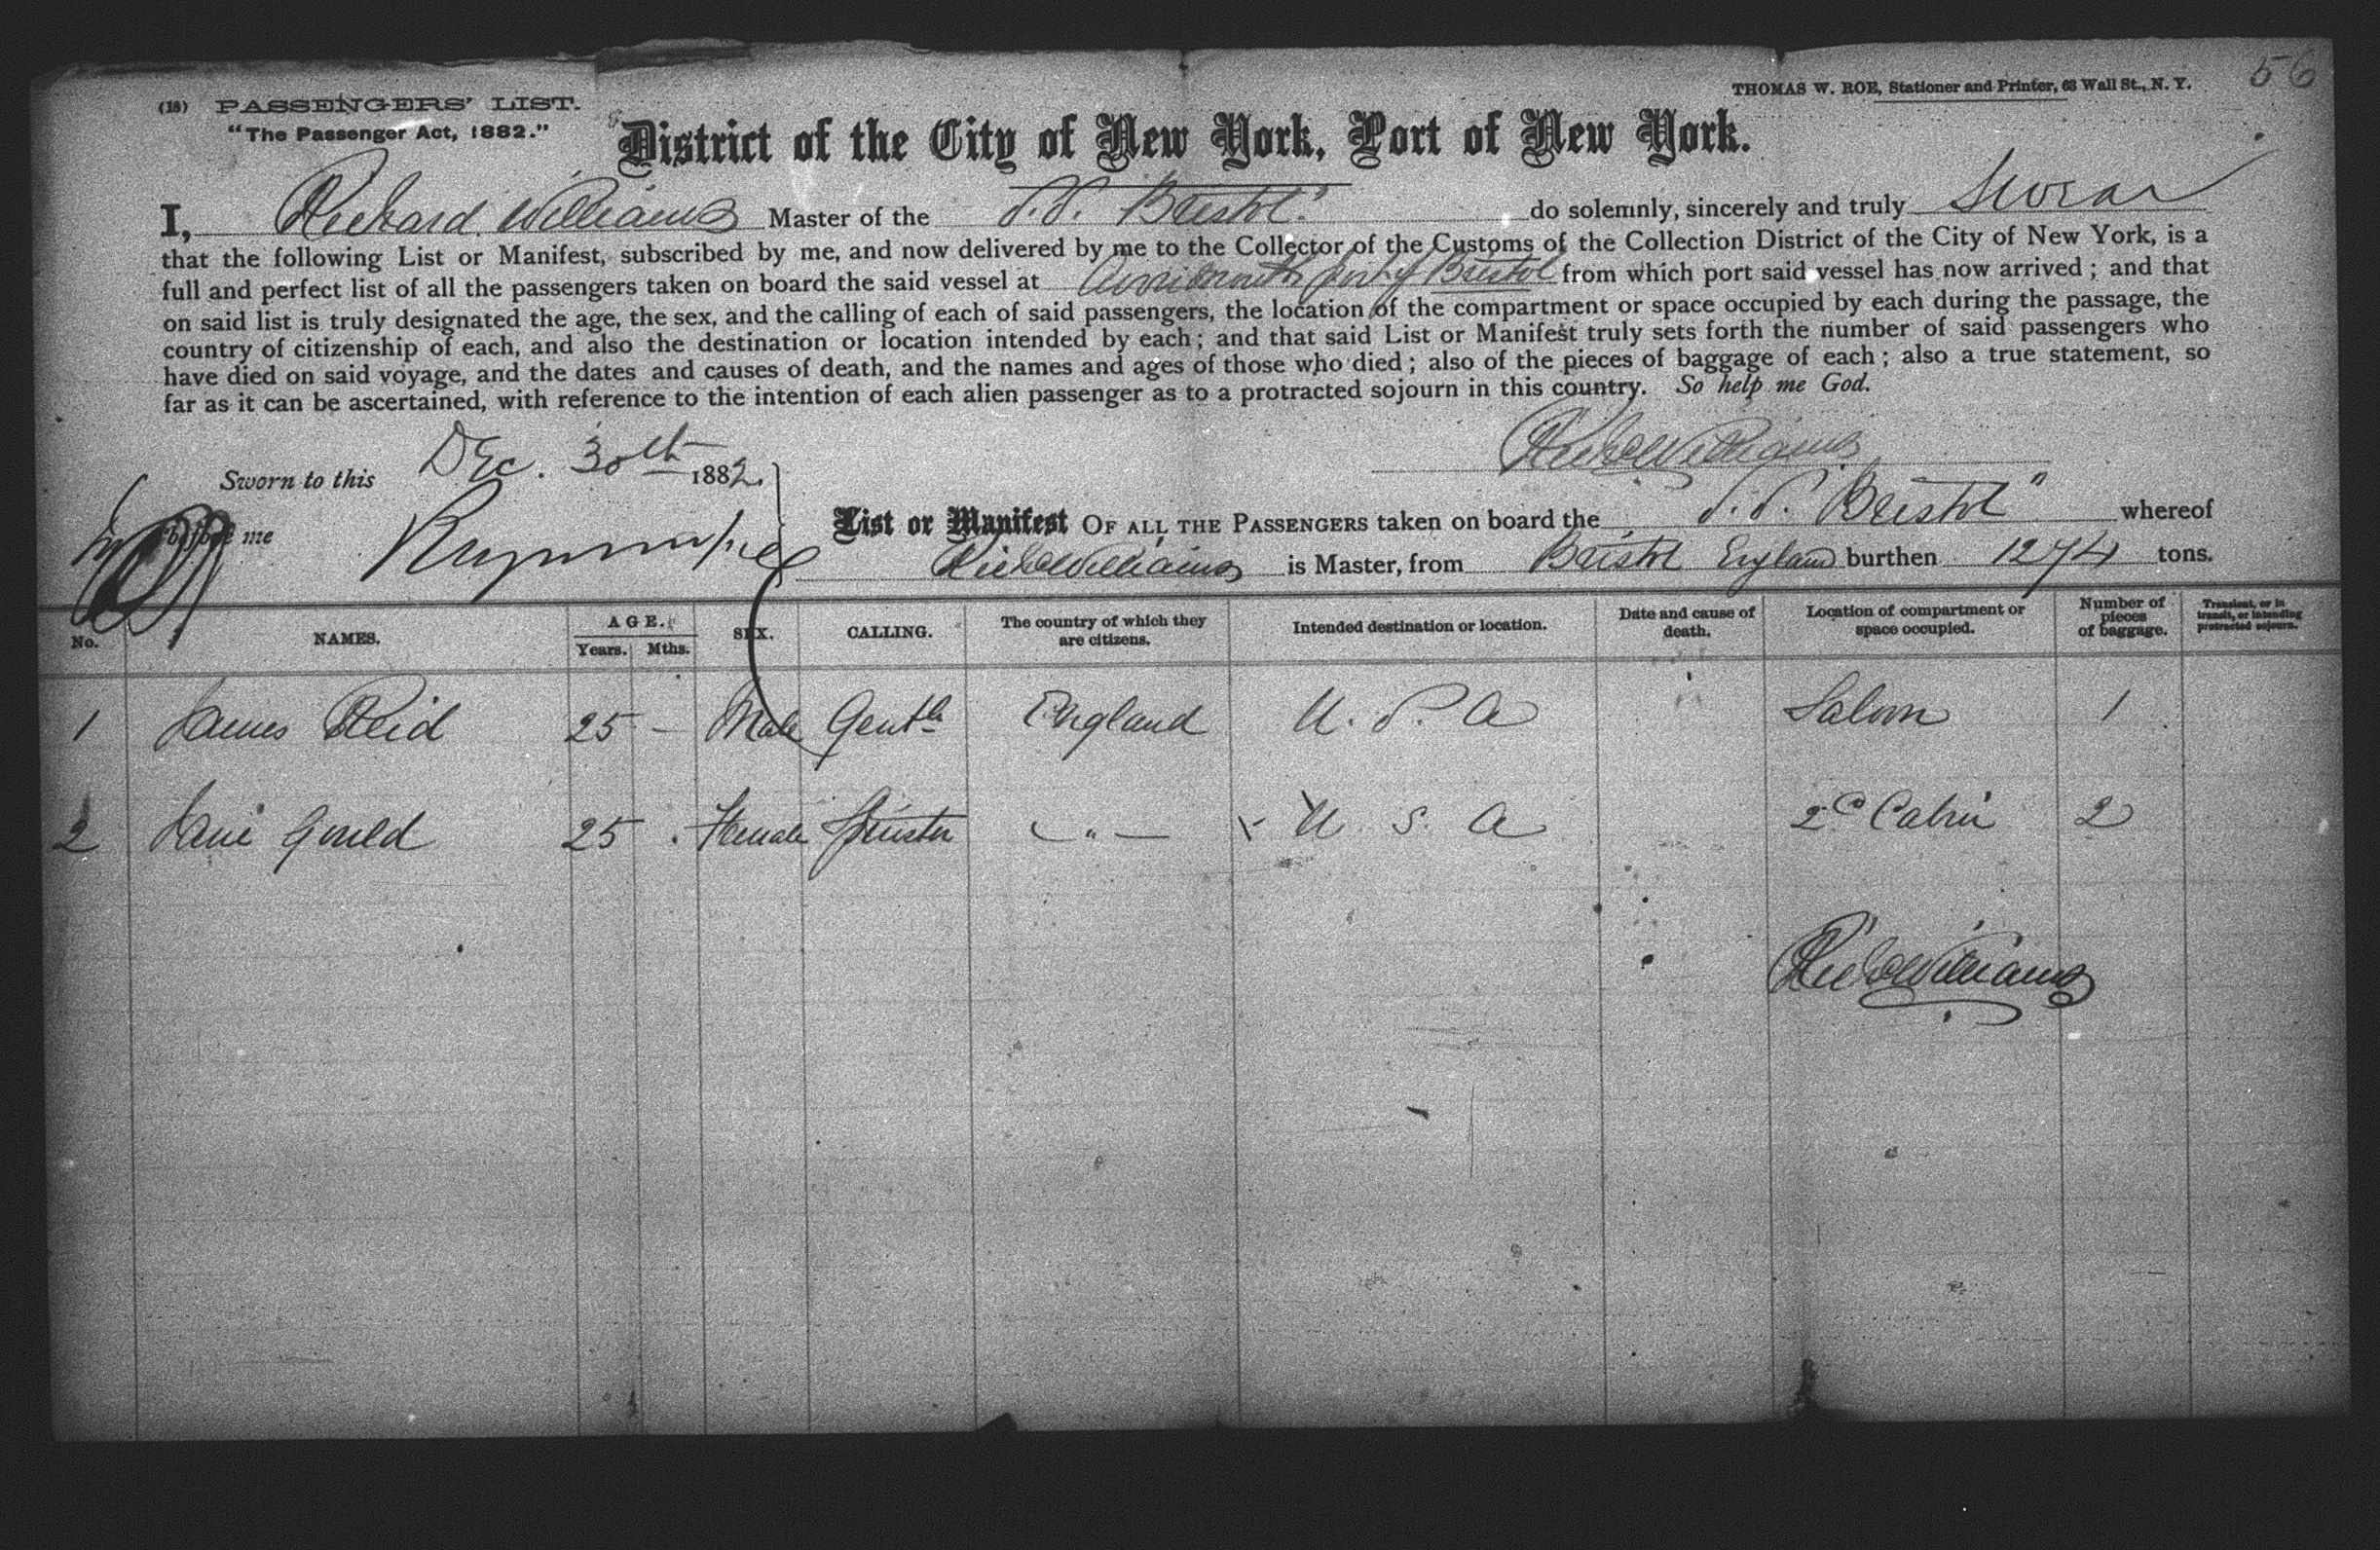 56
(18) PASSENGERS' LIST.
THOMAS W. ROE, Stationer and Printer, 63 Wall St., N. Y.
"The Passenger Act, 1882."
District of the City of New York, Port of New York.
I, Richard Williams Master of the S.S. Bristol" do solemnly, sincerely and truly Swear
that the following List or Manifest, subscribed by me, and now delivered by me to the Collector of the Customs of the Collection District of the City of New York, is a
full and perfect list of all the passengers taken on board the said vessel at Avonmouth port of Bristol from which port said vessel has now arrived; and that
on said list is truly designated the age, the sex, and the calling of each of said passengers, the location of the compartment or space occupied by each during the passage, the
country of citizenship of each, and also the destination or location intended by each; and that said List or Manifest truly sets forth the number of said passengers who
have died on said voyage, and the dates and causes of death, and the names and ages of those who died; also of the pieces of baggage of each; also a true statement, so
far as it can be ascertained, with reference to the intention of each alien passenger as to a protracted sojourn in this country. So help me God.
Richd Williams
Sworn to this Dec. 30th 1882.
before me
List or Manifest OF ALL THE PASSENGERS taken on board the S.S. Bristol" whereof
Richd Williams is Master, from Bristol England burthen 1274 tons.
No. NAMES. AGE. Years. Mths. SEX. CALLING. The country of which they are citizens. Intended destination or location. Date and cause of death. Location of compartment or space occupied. Number of pieces of baggage. Transient, or in transit, or intending protracted sojourn.
1 James Reid 25 - Male Gentln England U. S. A Saloon 1
2 Jane Gould 25 . Female Spinster — " — U S. A 2d Cabin 2
Richd Williams